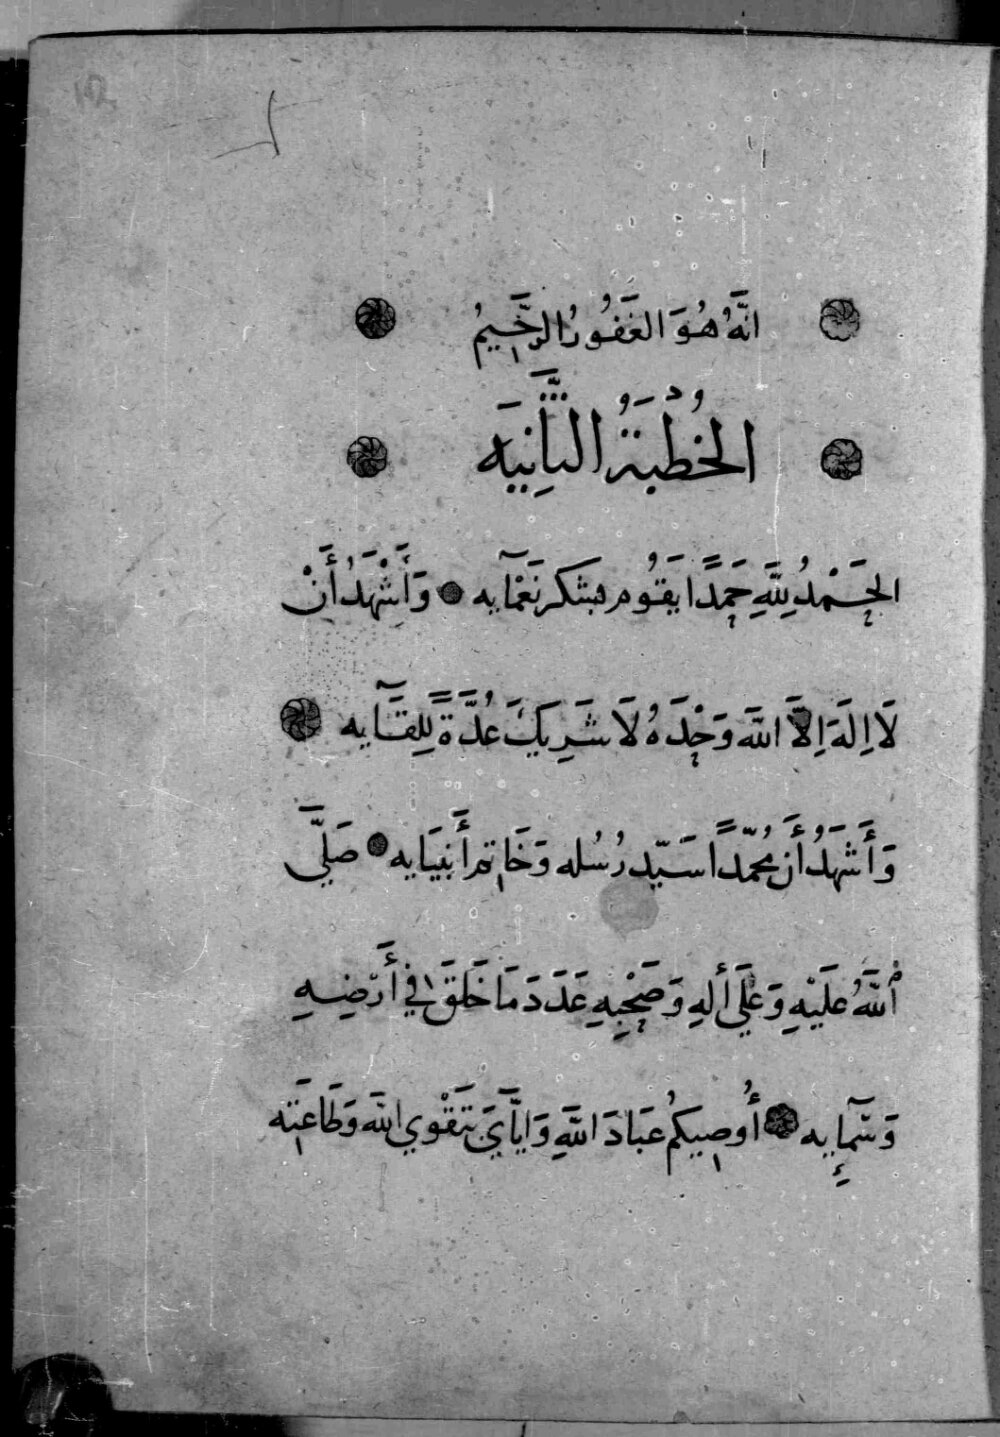 انَّهُ هُوَ الغَفُورُ الرَّحَيِمُ
الخُطْبَةُ الثَّانِيَه
الحَمْدُ لِلَّهِ حَمَدًا يَقُوم بشكر نَعْمَآيه وَأَشْهَدُ أَنْ
لَا اِلَهَ اِلَّا اللَّه وَحْدَهُ لَا شَرِيكَ عُدَّةً لِلِقَآيه
وَأَشْهَدُ أَن محُمّدًا سَيّد رُسُله وَخَاتم أَنبِيَايه صَلَّي
ٱللَّهُ عَلَيْهِ وَعَلَي أَلهِ وَصَحْبِهِ عَدَدَ مَا خَلَقَ فِي أَرْضِهِ
وَسَمَآيِه أُوصِيكُم عَبَادَ اللَّهِ وَايَّايَ بتَقْوي اللَّه وَطَاعَتِه